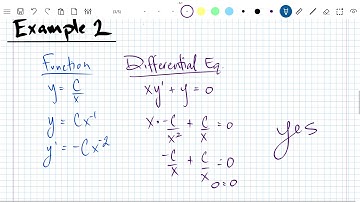 Example 2
Function
y = C/x
y = Cx⁻¹
y' = -Cx⁻²
Differential Eq
xy' + y = 0
x · -C/x² + C/x = 0
-C/x + C/x = 0
0 = 0
yes